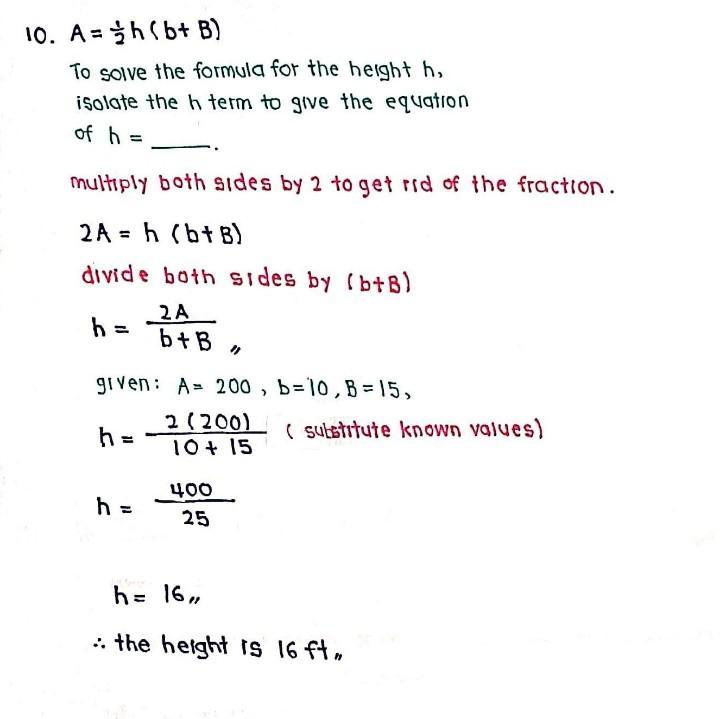 10. A = ½ h (b + B)
To solve the formula for the height h,
isolate the h term to give the equation
of h = ____.
multiply both sides by 2 to get rid of the fraction.
2A = h (b + B)
divide both sides by (b+B)
h = 2A / b + B ,,
given: A = 200 , b = 10 , B = 15,
h = 2 (200) / 10 + 15 ( substitute known values)
h = 400 / 25
h = 16 ,,
∴ the height is 16 ft ,,